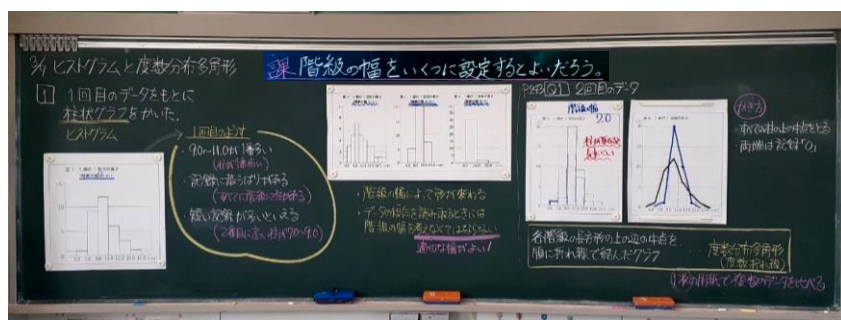 3/1 ヒストグラムと度数分布多角形
課 階級の幅をいくつに設定するとよいだろう。
1 1回目のデータをもとに
柱状グラフをかいた。
ヒストグラム
1回目のようす
・9.0~11.0が1番多い
(柱が1番高い)
・記録に散らばりがある
・短い記録が多いといえる
(2番目に高い柱が7.0~9.0)
・階級の幅によって形が変わる
・データの傾向を読み取るときには
階級の幅を考えなくてはならない
適切な幅がよい!
Q1 2回目のデータ
階級の幅
2.0
かき方
・すべての柱の上の中点をとる
・両端は度数「0」
各階級の長方形の上の辺の中点を、
順に折れ線で結んだグラフ
度数分布多角形
(度数折れ線)
1枚の用紙で複数のデータを比べる